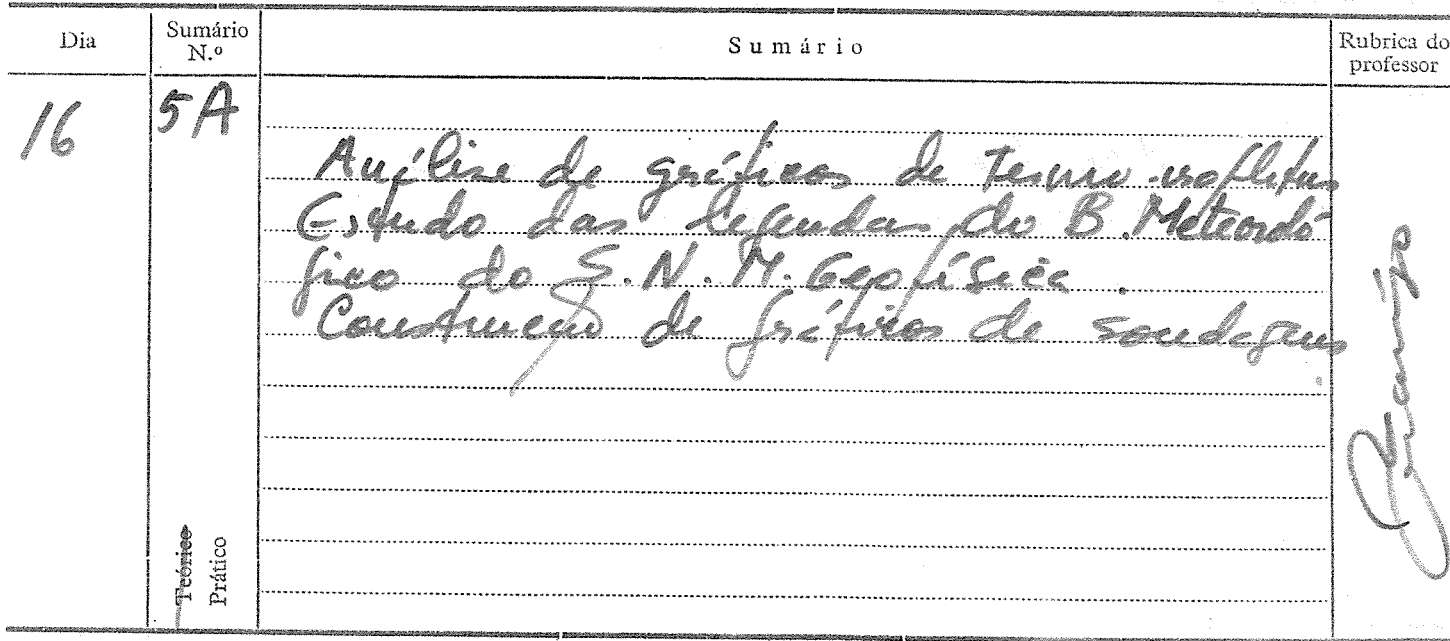 Dia
Sumário N.º
Sumário
Rubrica do professor
16
5A
Análise de gráficos de termo-isopletas
Estudo das legendas do B. Meteoroló
gico do S. N. M. Geofísica.
Construção de gráficos de sondagens
Teórico
Prático